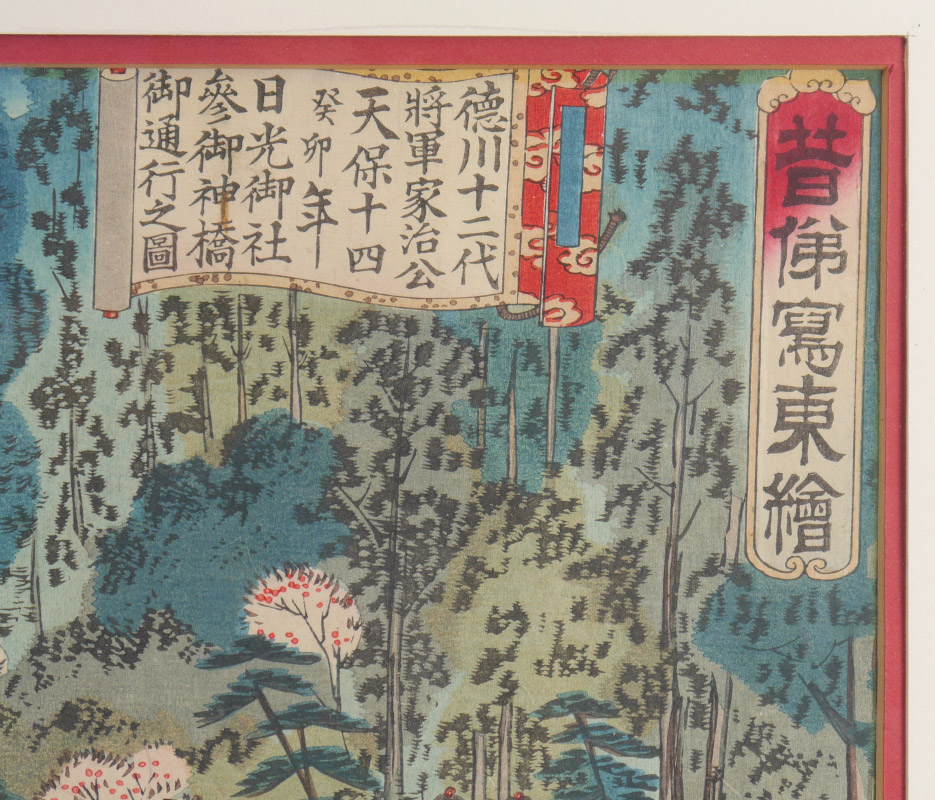 昔俤寫東繪
德川十二代
將軍家治公
天保十四
癸卯年
日光御社
參御神橋
御通行之圖